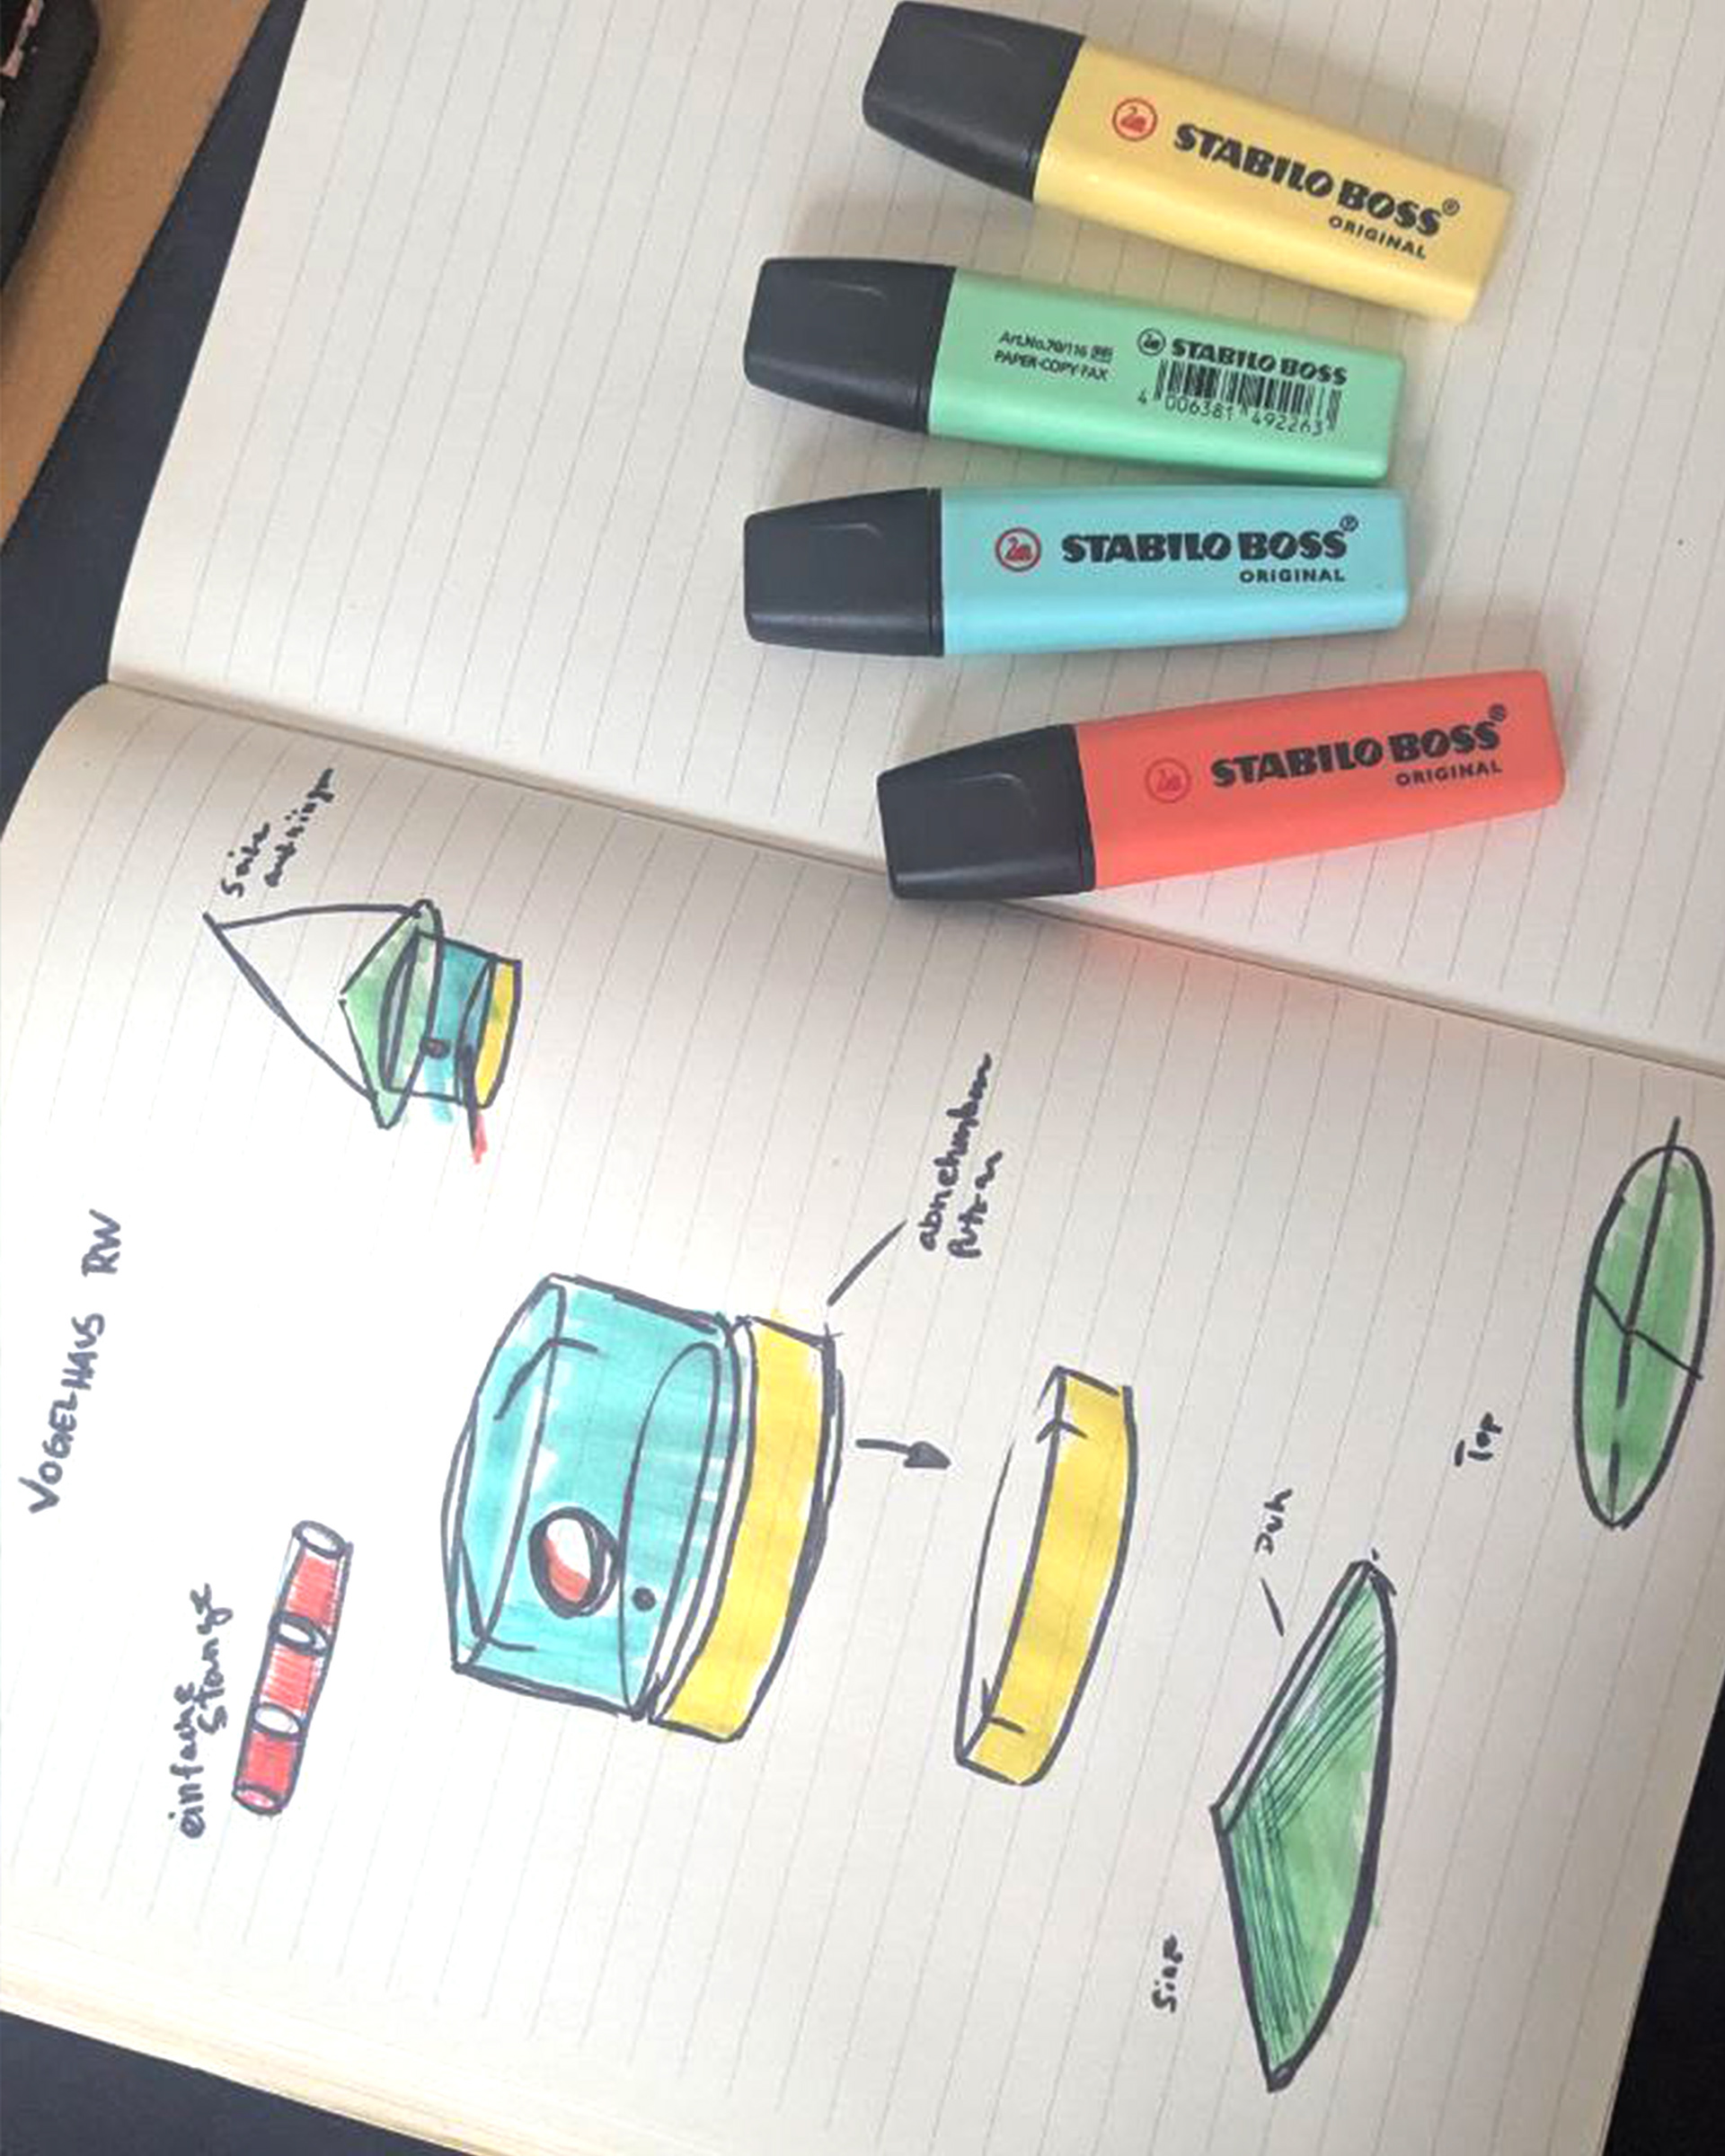 STABILO BOSS®
ORIGINAL
Art.No.70/116
PAPER-COPY-FAX
STABILO BOSS
4 006381 492263
STABILO BOSS®
ORIGINAL
STABILO BOSS®
ORIGINAL
VOGELHAUS RW
einfache
Stange
abnehmbar
Top
Side